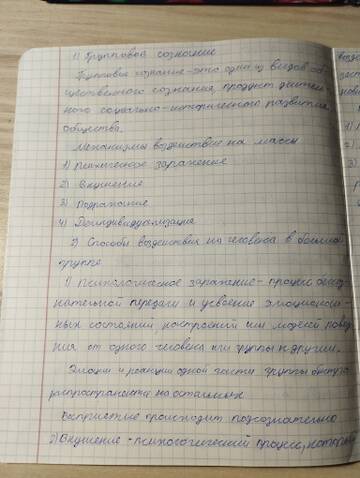 1) Групповое сознание
Групповое сознание - это один из видов об-
щественного сознания, продукт длитель-
ного социально-исторического развития
общества.
Механизмы воздействия на массы
1) Психическое заражение
2) Внушение
3) Подражание
4) Деиндивидуализация
2) Способы воздействия на человека в большой
группе
1) Психологическое заражение - процесс бессоз-
нательной передачи и усвоения эмоциональ-
ных состояний настроений или моделей поведе-
ния от одного человека или группы к другим.
Эмоции и реакции одной части группы быстро
распространяются на остальных
Восприятие происходит подсознательно
2) Внушение - психологический процесс, который